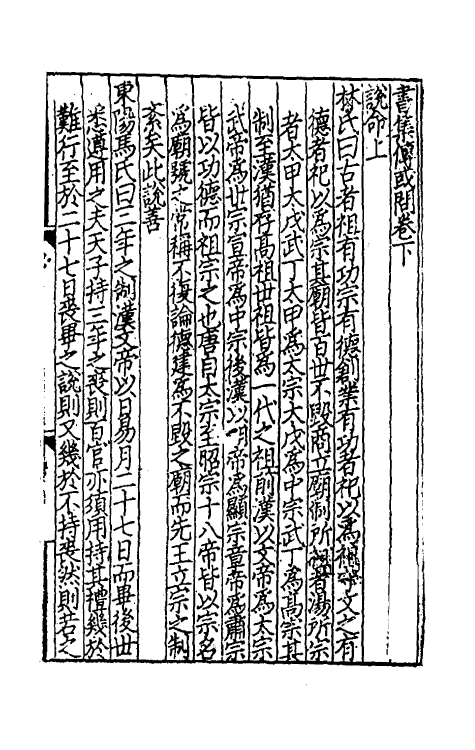 書集傳或問卷下
說命上
林氏曰古者祖有功宗有德創業有功者祀以爲祖守文之有
德者祀以爲宗其廟皆百世不毀商立廟制所祖者湯所宗
者太甲太戊武丁太甲爲太宗太戊爲中宗武丁爲高宗其
制至漢猶存高祖世祖皆爲一代之祖前漢以文帝爲太宗
武帝爲世宗宣帝爲中宗後漢以明帝爲顯宗章帝爲肅宗
皆以功德而祖宗之也唐自太宗至昭宗十八帝皆以宗名
爲廟號之常稱不復論德建爲不毀之廟而先王立宗之制
紊矣此說善
東陽馬氏曰三年之制漢文帝以日易月二十七日而畢後世
悉遵用之夫天子持三年之喪則百官亦須用持其禮幾於
難行至於二十七日喪畢之說則又幾於不持喪然則若之